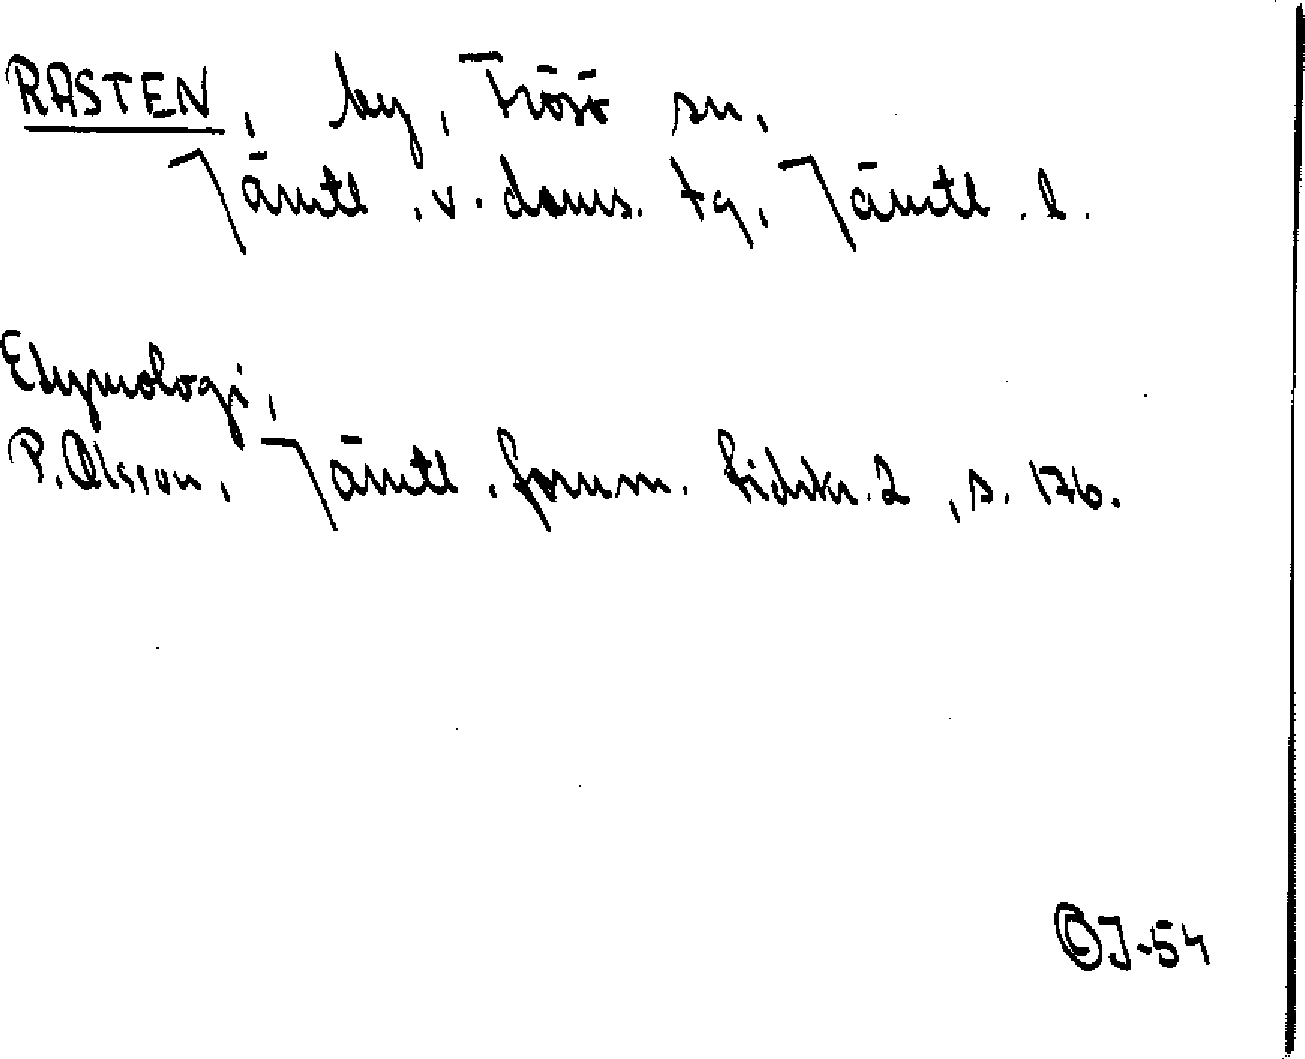 RASTEN, by, Frösö sn,
Jämtl. v. doms. tg, Jämtl. l.
Etymologi,
P. Olsson, Jämtl. fornm. tidskr. 2, s. 176.
©J-54